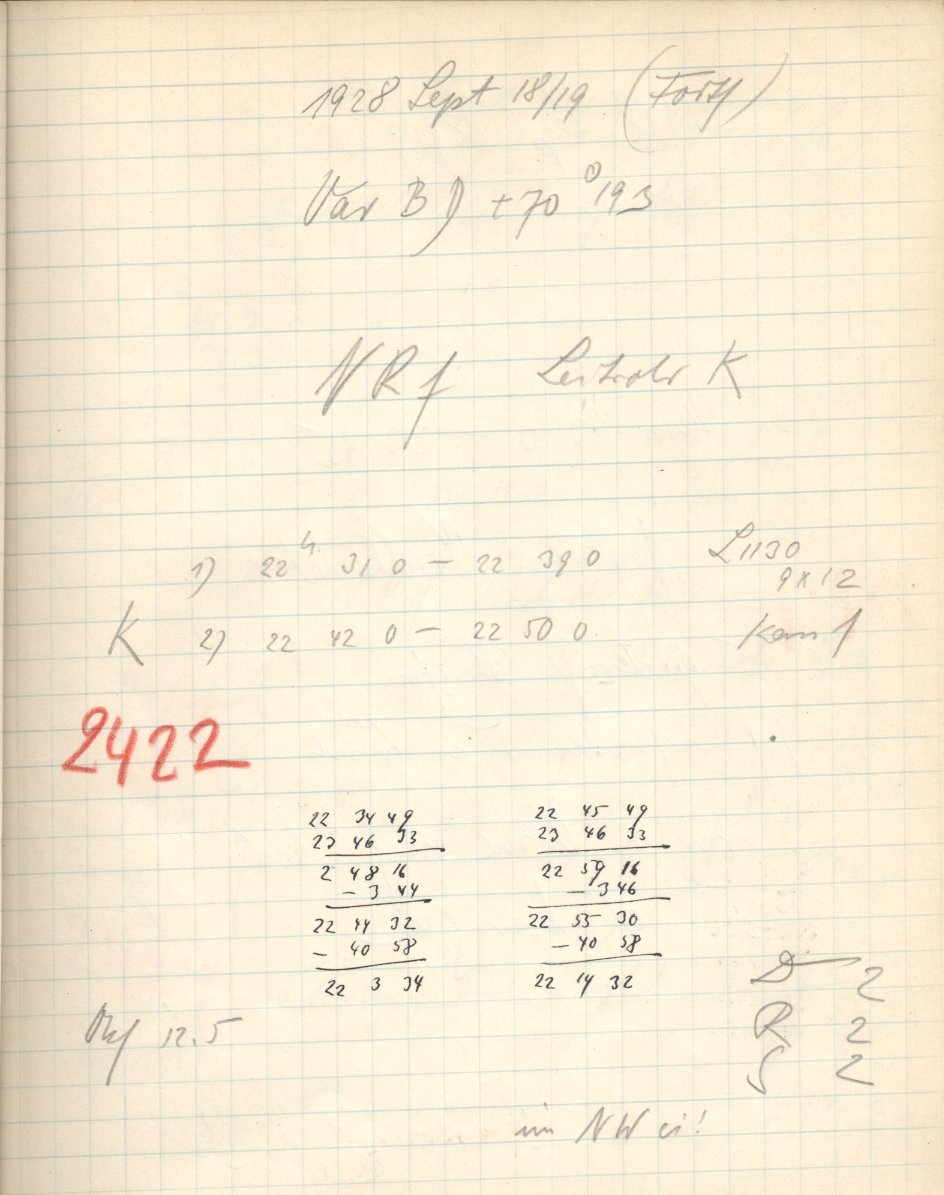 1928 Sept 18/19 (Forts)
Var BD +70° 193
NRf Leitrohr K
1) 22h 31 0 – 22 39 0 L 1130
9x12
K 2) 22 42 0 – 22 50 0 Kam f
2422
22 34 49
23 46 33
2 48 16
– 3 44
22 44 32
– 40 58
22 3 34
22 45 49
23 46 33
22 59 16
– 3 46
22 55 30
– 40 58
22 14 32
D 2
12.5
R 2
S 2
im NW ci!